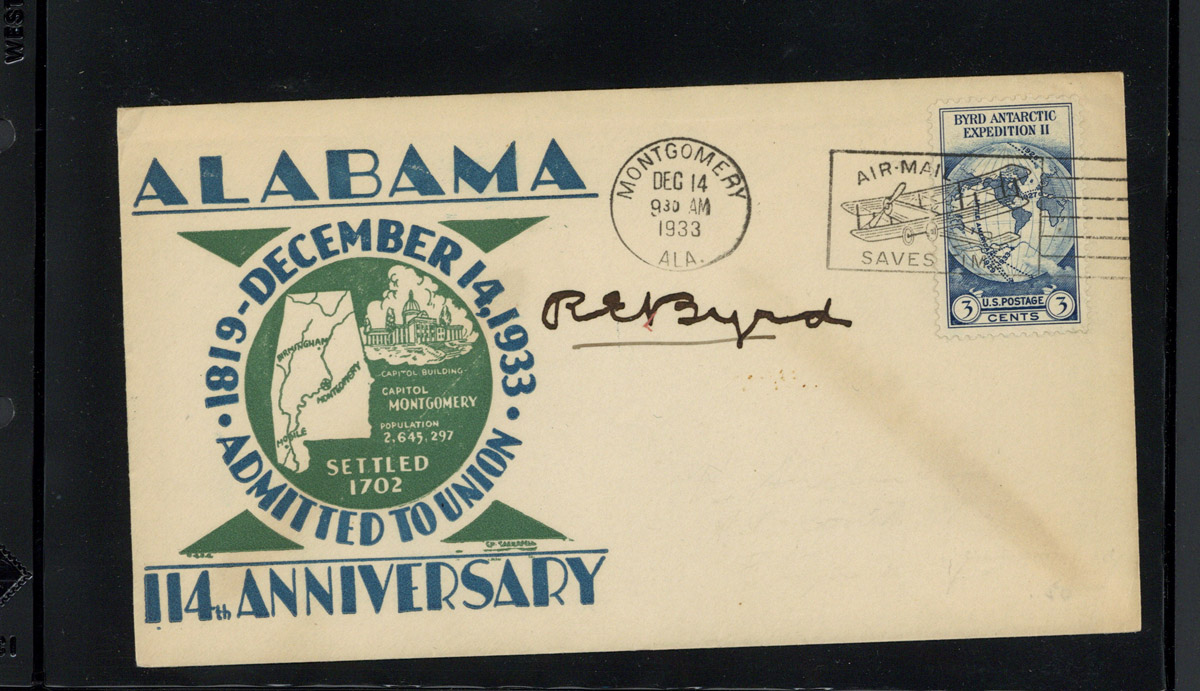 ALABAMA
1819-DECEMBER 14, 1933
• ADMITTED TO UNION •
BIRMINGHAM
MONTGOMERY
MOBILE
CAPITOL BUILDING
CAPITOL
MONTGOMERY
POPULATION
2,645,297
SETTLED
1702
114th ANNIVERSARY
MONTGOMERY
DEC 14
930 AM
1933
ALA.
AIR-MAI
SAVES
R E Byrd
BYRD ANTARCTIC
EXPEDITION II
3 U.S. POSTAGE 3
CENTS